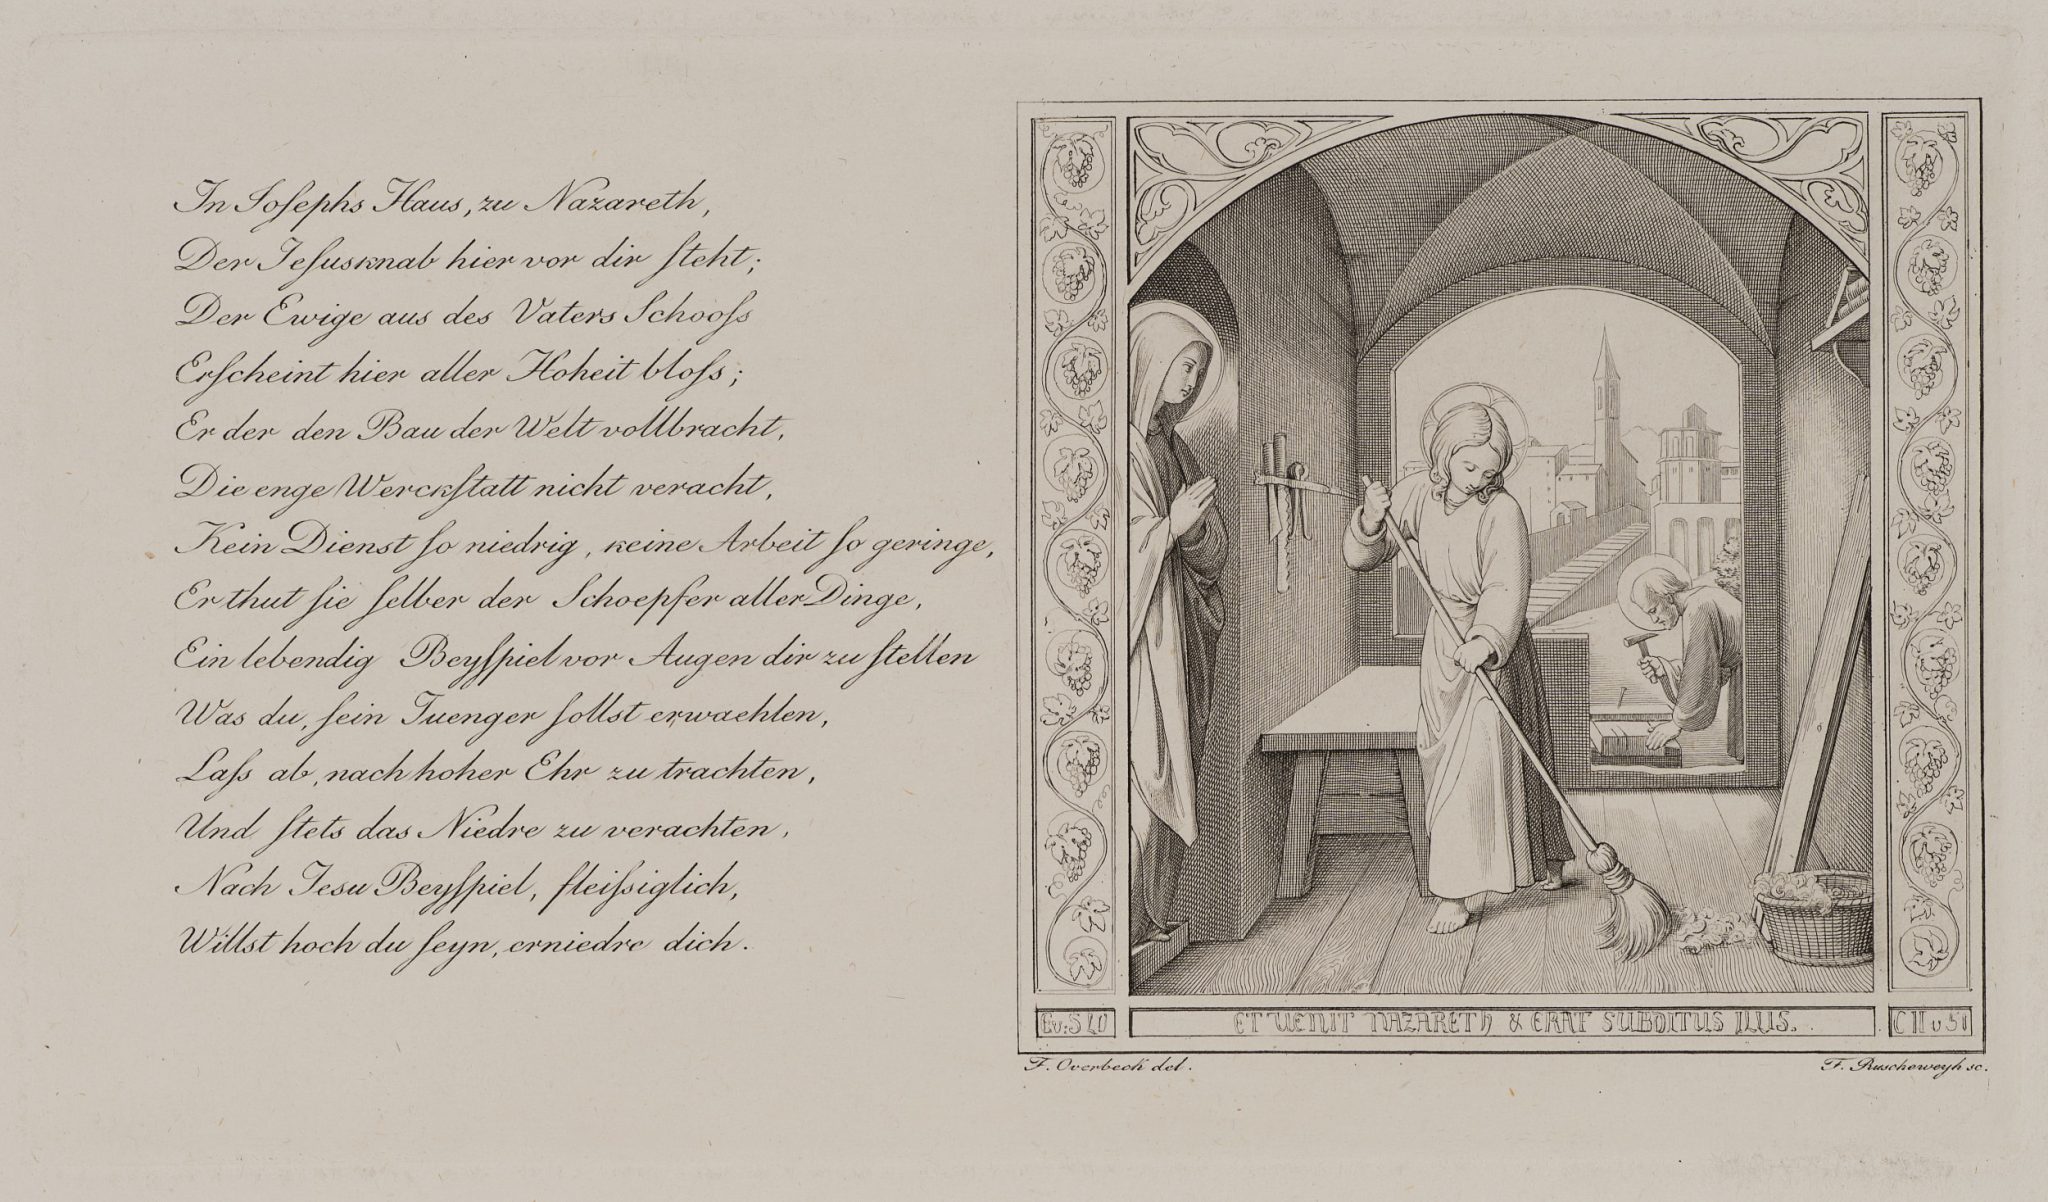 In Iosephs Haus, zu Nazareth,
Der Iesusknab hier vor dir steht;
Der Ewige aus des Vaters Schooss
Erscheint hier aller Hoheit bloss;
Er der den Bau der Welt vollbracht,
Die enge Werckstatt nicht veracht,
Kein Dienst so niedrig, keine Arbeit so geringe,
Er thut sie selber der Schoepfer aller Dinge,
Ein lebendig Beyspiel vor Augen dir zu stellen
Was du, sein Iuenger sollst erwaehlen,
Lass ab, nach hoher Ehr zu trachten,
Und stets das Niedre zu verachten,
Nach Iesu Beyspiel, fleissiglich,
Willst hoch du seyn, erniedre dich.
Ev: S LU
ET VENIT NAZARETH & ERAT SUBDITUS ILLIS.
C II v 51
F. Overbeck del.
F. Ruscheweyh sc.